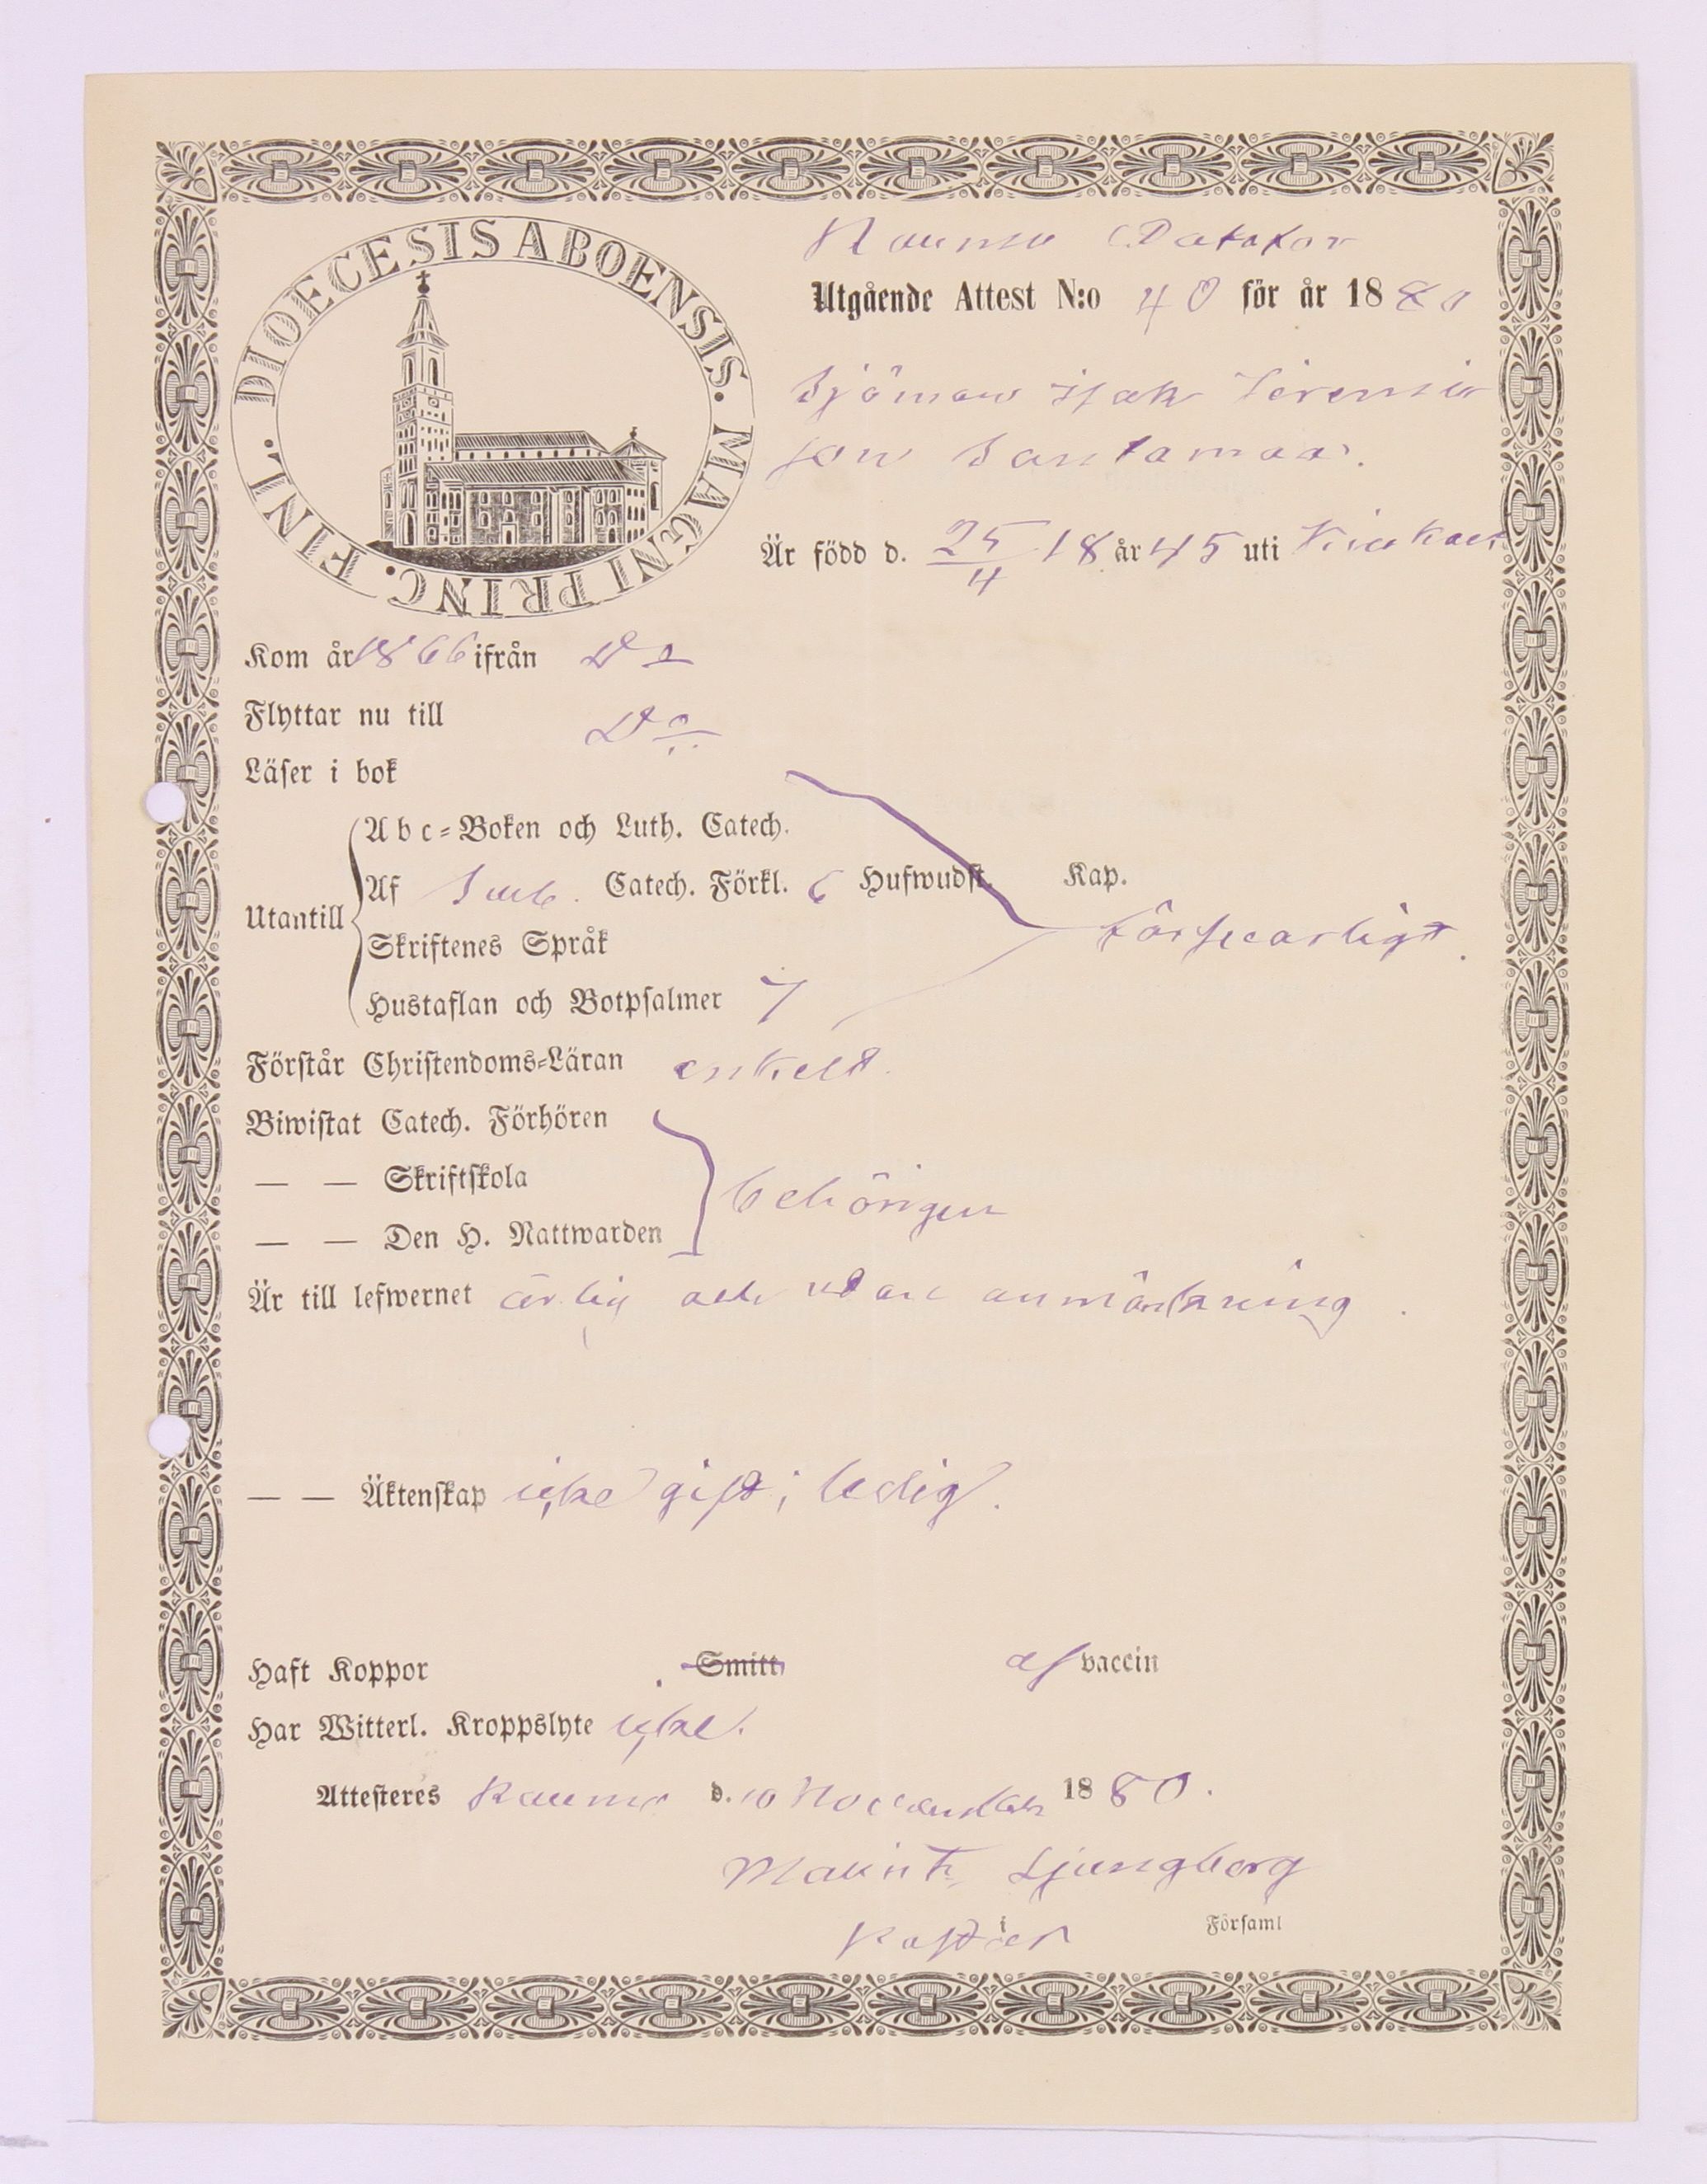 DIOECESIS ABOENSIS. MAGNI PRINC. FINL.
Raumo
Utgående Attest N:o 40 för år 1880
Sjöman Isak Jeremias
son Santamaa.
Är född d. 25/4 18 år 45 uti
Kom år 1866 ifrån Do
Flyttar nu till Do
Läser i bok
Utantill
Abc-Boken och Luth. Catech.
Af Sveb. Catech. Förkl. 6 Hufwudst. Kap.
försvarligt.
Skriftenes Språk
Hustaflan och Botpsalmer 7
Förstår Christendoms-Läran enkelt.
Biwistat Catech. Förhören
— — Skriftskola
behörigen
— — Den H. Nattwarden
Är till lefwernet ärlig och utan anmärkning.
— — Äktenskap icke gift; ledig.
Haft Koppor . Smitt. af vaccin
Har Witterl. Kroppslyte icke.
Attesteres Raumo d. 10 November 1880.
Ljungberg
i Församl